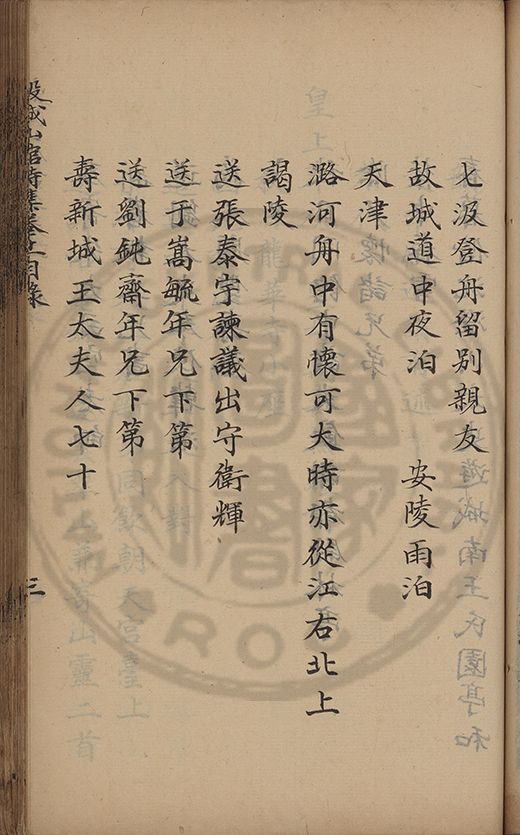 七汲登舟留別親友
故城道中夜泊　安陵雨泊
天津
潞河舟中有懷可大時亦從江右北上
謁陵
送張泰宇諫議出守衛輝
送于嵩毓年兄下第
送劉鈍齋年兄下第
壽新城王太夫人七十
三